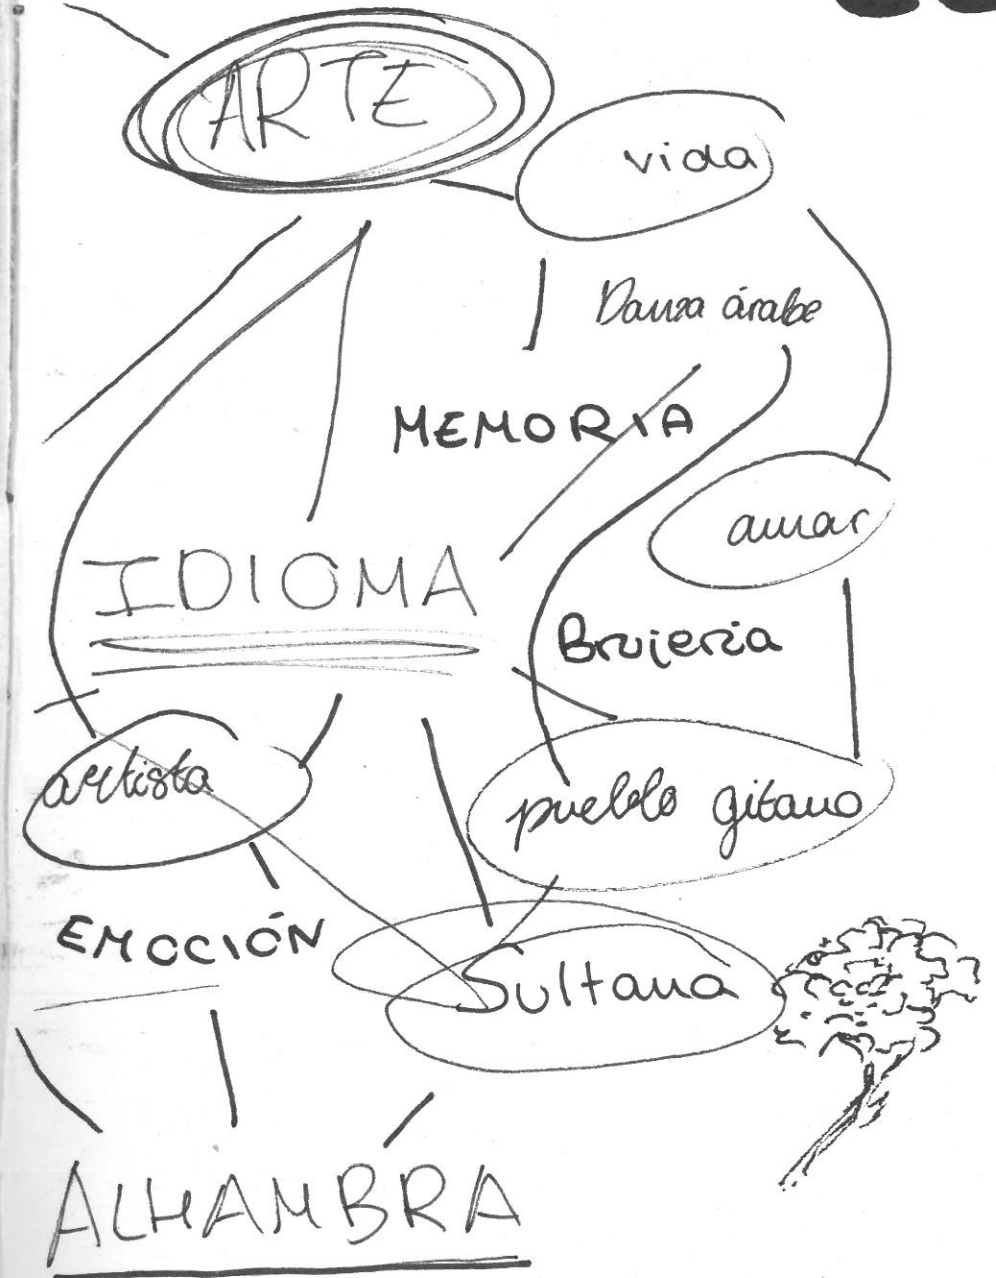 ARTE
vida
Danza árabe
MEMORIA
amar
IDIOMA
Brujeria
artista
pueblo gitano
EMOCIÓN
Sultana
ALHAMBRA